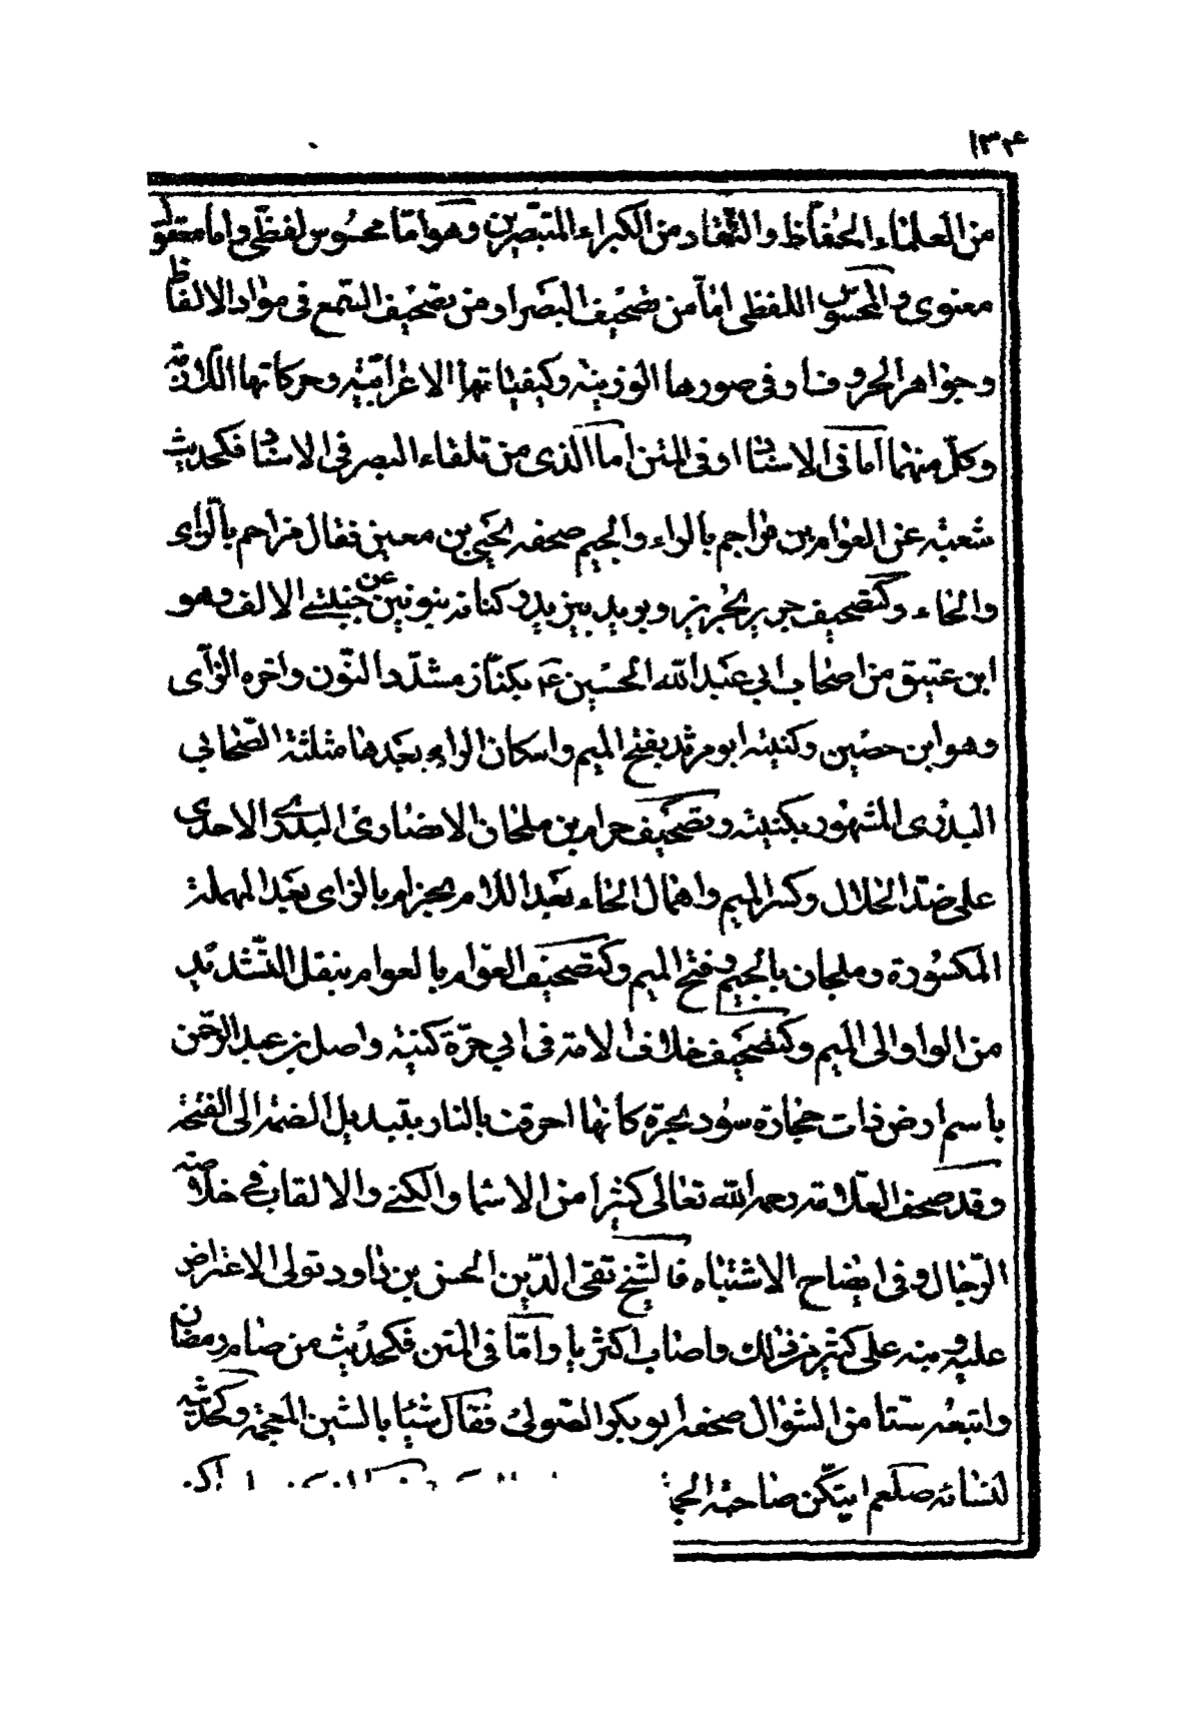 ۱۳۴
من العلماء الحفاظ والنقاد من الكبراء المتبصرين وهو اما محسوس لفظى واما معقول
معنوى والمحسوس اللفظى اما من تصحيف البصر او من تصحيف السمع فى مواد الالفاظ
وجواهر الحروف او فى صورها الوزنية وكيفياتها الاعرابية وحركاتها اللازمة
وكل منهما اما فى الاسناد او فى المتن اما الذى من تلقاء البصر فى الاسناد فكحديث
شعبة عن العوام بن مراجم بالراء والجيم صحفه يحيى بن معين فقال مزاحم بالزاى
والحاء وكتصحيف جرير بحريز و بريد بيزيد وكناز بنونين عن جنبتى الالف وهو
ابن عتيق من اصحاب ابى عبد الله الحسين ع بكناز مشدد النون واخره الزاى
وهو ابن حصين وكنيته ابو مرثد بفتح الميم واسكان الراء بعدها مثلثة الصحابى
البدرى المشهور بكنيته وتصحيف حرام بن ملحان الانصارى البدرى الاحدى
على ضد الحلال وكسر الميم واهمال الحاء بعد اللام بحزام بالزاى بعد المهملة
المكسورة وملجان بالجيم وفتح الميم وكتصحيف العوام بالعوام بنقل التشديد
من الواو الى الميم وكتصحيف خلاف الامة فى ابى حرة كنية واصل بن عبد الرحمن
باسم ارض ذات حجارة سود بحرة كانها احرقت بالنار بتبديل الضمة الى الفتحة
وقد صحف العلامة رحمه الله تعالى كثيرا من الاسما والكنى والالقاب فى خلاصة
الرجال وفى ايضاح الاشتباه فالشيخ تقى الدين الحسن بن داود تولى الاعتراض
عليه ومنه على كثير من ذلك واصاب اكثريا واما فى المتن فكحديث من صام رمضان
واتبعه ستا من الشوال صحفه ابو بكر الصولى فقال شيئا بالشين المعجمة وكحديثه
لنسائه صلعم ايتكن صاحبة الجم